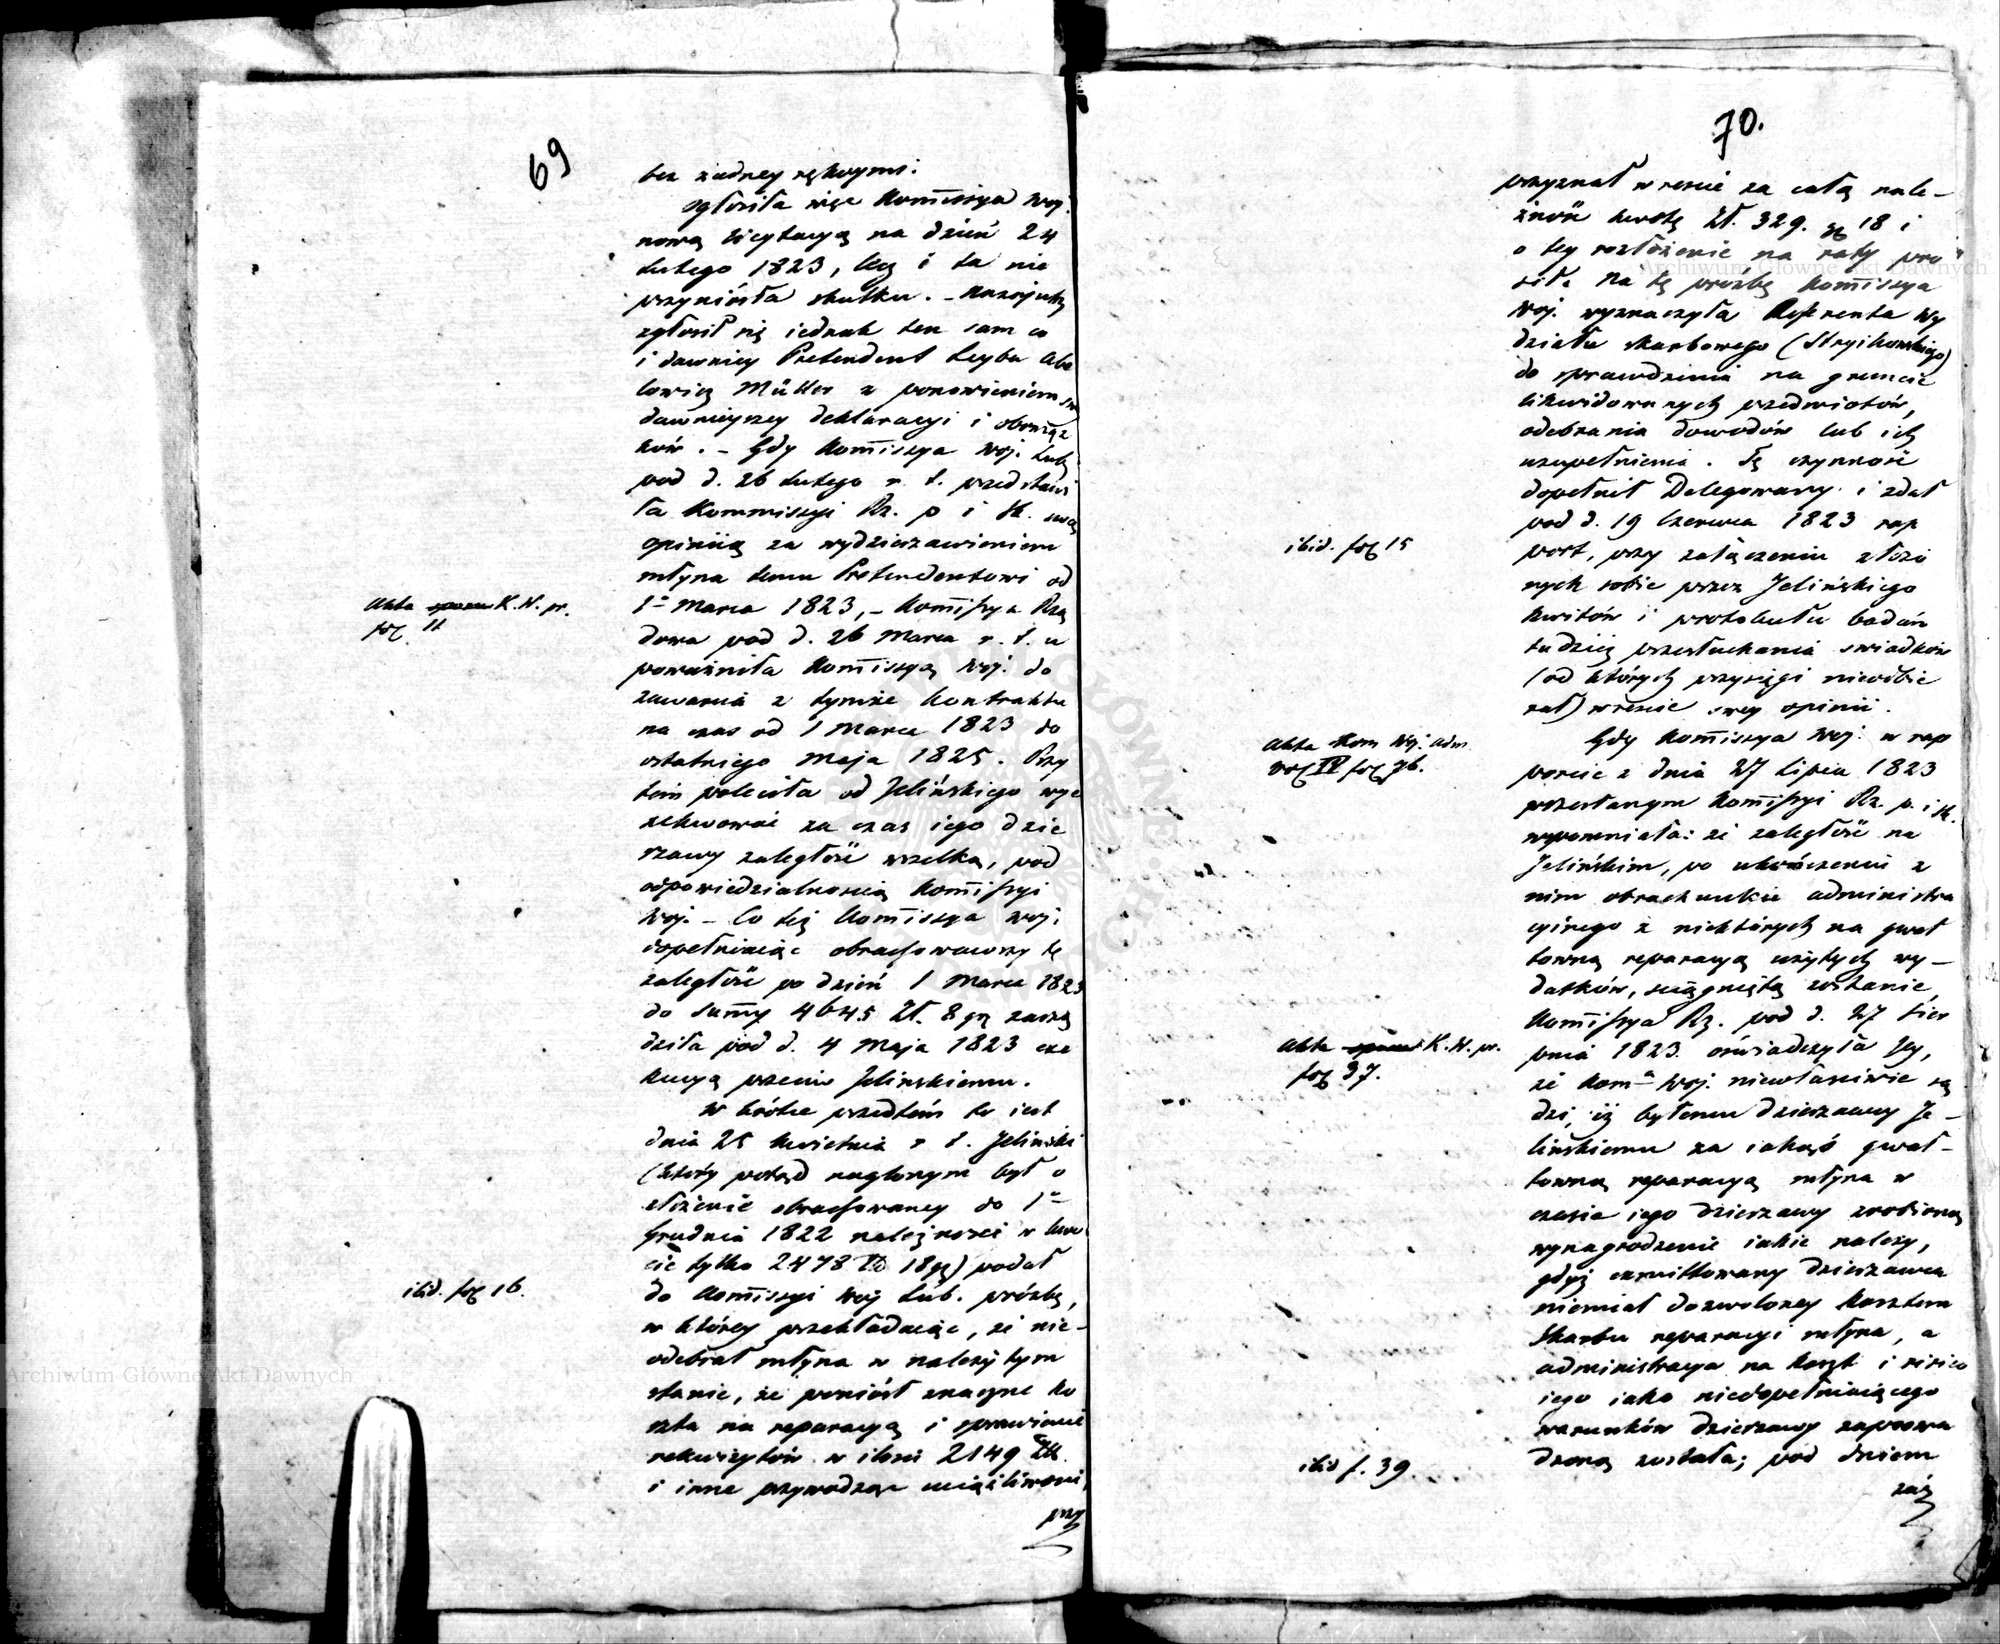 69
bez żadney rękoymi:
ogłosiła więc Kom̄issya Woj.
nową licytacyą na dzień 24
Lutego 1823, lecz i ta nie
przyniosła skutku. – Nazajutrz
zgłosił się iednak ten sam co
i dawniey Pretendent Leyba Abra
lowicz Müller z ponowieniem sw
dawnieyszey deklaracyi i obowiąz
ków. – Gdy Kom̄issya Woj. Lub.
pod d. 26 Lutego r. t. przedstawi
ła Kommissyi Rz. p i Sk. swą
opiniią za wydzierzawieniem
młyna temu Pretendentowi od
1º Marca 1823, – Kom̄issya Rzą
dowa pod d. 26 Marca r. t. u
poważniła Kom̄issyą Woj. do
zawarcia z tymże kontraktu
na czas od 1 Marca 1823 do
ostatniego Maja 1825. Przy
tem poleciła od Jelińskiego wye
zekwować za czas iego dzie
rzawy zaległość wszelką, pod
odpowiedzialnością Kom̄issyi
Woj. – Co też Kom̄issya Woj.
dopełniaiąc obrachowawszy tę
zaległość po dzień 1 Marca 1823
do sum̄y 4645 Zł. 8 gr zarzą
dziła pod d. 4 Maja 1823 exe
kucyą przeciw Jelinskiemu.
W krótce przedtem to iest
dnia 25 Kwietnia r t. Jelinski
(który potąd naglonym był o
złożenie obrachowaney do 1º
Grudnia 1822 należności w kwo
cie tylko 2478 Zł 18 gr) podał
do Kom̄issyi Woj Lub. prózbę,
w którey przekładaiąc, że nie–
odebrał młyna w należytym
stanie, że poniósł znaczne ko
szta na reparacyą i sprawienie
rekwizytów w ilości 2149 Zł.
i inne przywodząc uciążliwości,
przy
Akta spraw K. W. pr.
fol. 11
ibid. fol 16.
70.
przyznał w resacie za całą nale–
żność kwotę Zł. 329. gr 18 i
o tey rozłożenie na raty pro
sił. Na tę prózbę Kom̄issya
Woj. wyznaczyła Referenta Wy
działu skarbowego (Stryikowskiego)
do sprawdzenia na gruncie
likwidowanych przedmiotów,
odebrania dowodów lub ich
uzupełnienia. Tę czynność
dopełnił Delegowany i zdał
pod d. 19 Czerwca 1823 rap
port, przy załączeniu złożo
nych sobie przez Jelińskiego
kwitów i protokułu badań
tudzież przesłuchania swiadków
(od których przysięgi nieodbie
rał) wresacie swey opinii.
Gdy Kom̄issya Woj. w rap
porcie z dnia 27 Lipca 1823
przesłanym Kom̄issyi Rz. p. i Sk.
wspomniała: że zaległość na
Jelińskim, po ukończeniu z
nim obrachunku administra
cyinego z niektórych na gwał
towną reparacyą użytych wy–
datków, sciągniętą zostanie,
Kom̄issya Rz. pod d. 27 Sier
pnia 1823. oświadczyła Jey,
że Kom.ª Woj. niewłasciwie są
dzi, iż byłemu dzierzawcy Je–
lińskiemu za iakąś gwał–
towną reparacyą młyna w
czasie iego dzierzawy zrobioną
wynagrodzenie iakie należy,
gdyż exmittowany dzierzawca
niemiał dozwoloney kosztem
Skarbu reparacyi młyna, a
administracya na koszt i risico
iego iako niedopełniaiącego
warunków dzierzawy zaprowa
dzoną została; pod dniem
zaś
ibid. fol 15
Akta Kom Woj. Adm.
vol IV fol 76.
Akta spraw K. W. pr.
fol 37.
ibid f. 39.
Archiwum Główne Akt Dawnych
Archiwum Główne Akt Dawnych